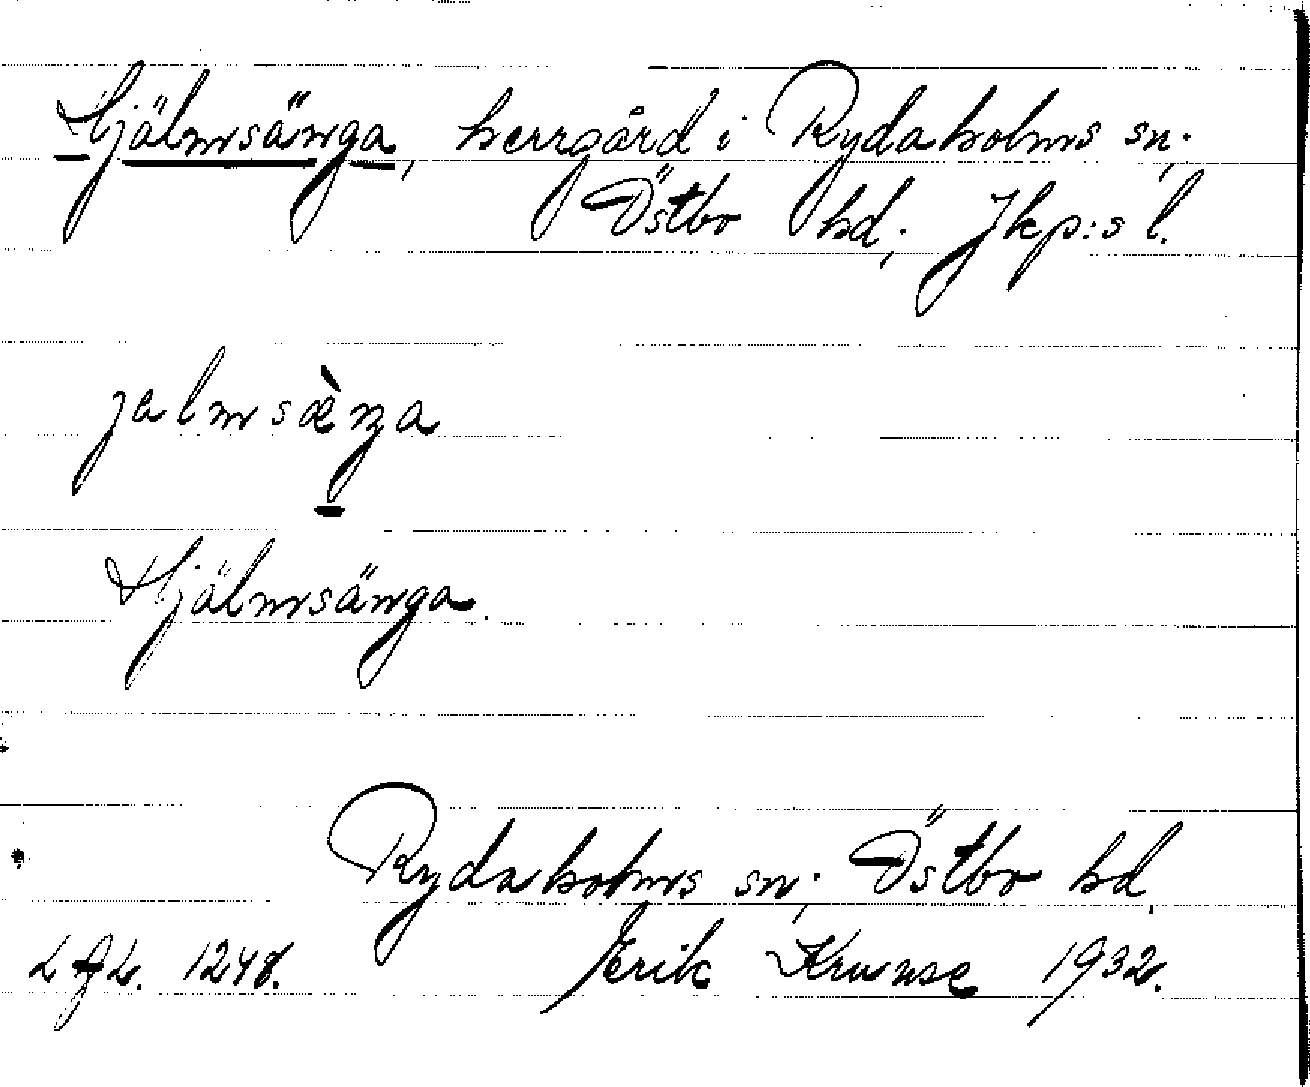 Hjälmsänga, herrgård i Rydaholms sn.
Östbo hd, Jkp:s l.
jalmsæ̀ŋa
Hjälmsänga.
Rydaholms sn, Östbo hd,
1248. Erik Kruuse 1932.